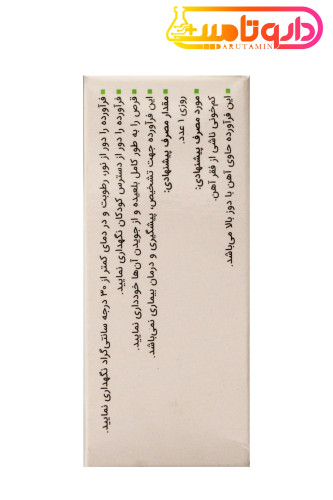 داروتامین
DARUTAMIN
این فرآورده حاوی آهن با دوز بالا می‌باشد.
مورد مصرف پیشنهادی:
کم‌خونی ناشی از فقر آهن.
مقدار مصرف پیشنهادی:
روزی ۱ عدد.
این فرآورده جهت تشخیص، پیشگیری و درمان بیماری نمی‌باشد.
قرص را به طور کامل بلعیده و از جویدن آن‌ها خودداری نمایید.
فرآورده را دور از دسترس کودکان نگهداری نمایید.
فرآورده را دور از نور، رطوبت و در دمای کمتر از ۳۰ درجه سانتی‌گراد نگهداری نمایید.